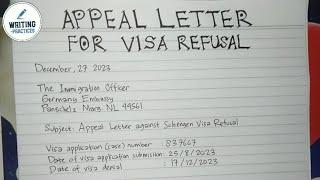 WRITING
PRACTICES
APPEAL LETTER
FOR VISA REFUSAL
December, 27 2023
The Immigration Officer
Germany Embassy
Panschelz Marg NL 44561
Subject: Appeal Letter against Schengen Visa Refusal
Visa application (case) number : 837667
Date of visa application submission : 25/8/2023
Date of visa denial : 17/12/2023